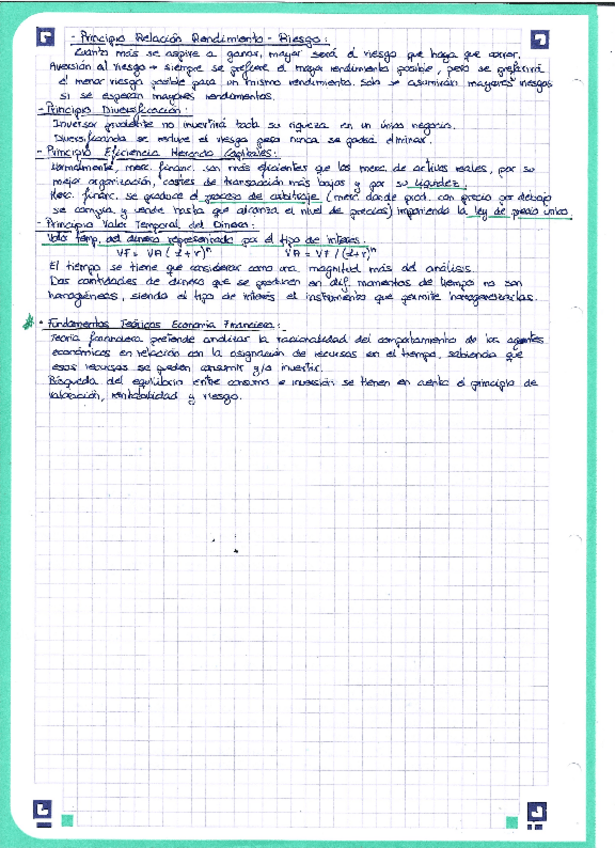 - Principio Relación Rendimiento - Riesgo:
Cuanto más se aspire a ganar, mayor será el riesgo que haya que correr.
Aversión al riesgo → siempre se prefiere el mayor rendimiento posible, pero se preferirá
el menor riesgo posible para un mismo rendimiento. Solo se asumirán mayores riesgos
si se esperan mayores rendimientos.
- Principio Diversificación:
Inversor prudente no invertirá toda su riqueza en un único negocio.
Diversificando se reduce el riesgo pero nunca se podrá eliminar.
- Principio Eficiencia Mercado Capitales:
Normalmente, merc. financ. son más eficientes que los merc. de activos reales, por su
mejor organización, costes de transacción más bajos y por su liquidez.
Merc. financ. se produce el proceso de arbitraje (merc. donde prod. con precio por debajo
se compra y vende hasta que alcanza el nivel de precios) imponiendo la ley de precio único.
- Principio Valor Temporal del Dinero:
Valor temp. del dinero representado por el tipo de interés:
VF = VA (1+r)ⁿ VA = VF / (1+r)ⁿ
El tiempo se tiene que considerar como una magnitud más del análisis.
Dos cantidades de dinero que se producen en dif. momentos de tiempo no son
homogéneas, siendo el tipo de interés el instrumento que permite homogeneizarlas.
• Fundamentos Teóricos Economía Financiera:
Teoría financiera pretende analizar la racionalidad del comportamiento de los agentes
económicos en relación con la asignación de recursos en el tiempo, sabiendo que
esos recursos se pueden consumir y/o invertir.
Búsqueda del equilibrio entre consumo e inversión se tienen en cuenta el principio de
valoración, rentabilidad y riesgo.